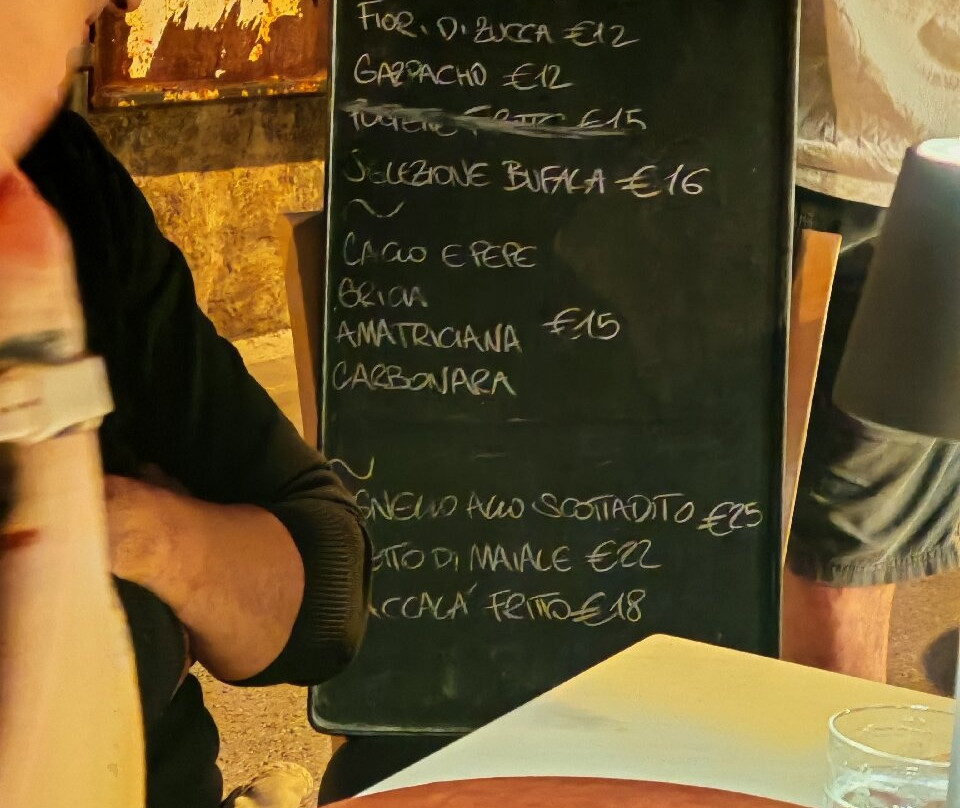 FIOR. DI ZUCCA €12
GAZPACHO €12
€15
SELEZIONE BUFALA €16
~
CACIO E PEPE
GRICIA
AMATRICIANA €15
CARBONARA
~
GNELLO ALLO SCOTTADITO €25
ETTO DI MAIALE €22
ACCALA' FRITTO €18